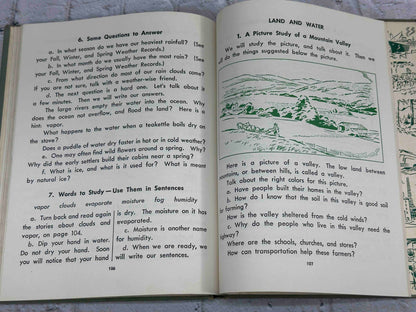 6. Some Questions to Answer
a. In what season do we have our heaviest rainfall? (See
your Fall, Winter, and Spring Weather Records.)
b. In what month do we usually have the most rain? (See
your Fall, Winter, and Spring Weather Records.)
c. From what direction do most of our rain clouds come?
If you are not sure, talk with a weather-wise friend.
d. The next question is a hard one. Let's talk about it
a few minutes. Then we will write our answers.
The large rivers empty their water into the ocean. Why
does the ocean not overflow, and flood the land? Here is a
hint: vapor.
What happens to the water when a teakettle boils dry on
the stove?
Does a puddle of water dry faster in hot or in cold weather?
e. One may often find wild flowers around a spring. Why?
Why did the early settlers build their cabins near a spring?
f. What is ice, and what is it used for? What is meant
by natural ice?
7. Words to Study—Use Them in Sentences
vapor clouds evaporate moisture fog humidity
a. Turn back and read again
the stories about clouds and
vapor, on page 104.
b. Dip your hand in water.
Do not dry your hand. Soon
you will notice that your hand
is dry. The moisture on it has
evaporated.
c. Moisture is another name
for humidity.
d. When we are ready, we
will write sentences.
106
LAND AND WATER
1. A Picture Study of a Mountain Valley
We will study the picture, and talk about it. Then we
will do the things suggested below the picture.
Here is a picture of a valley. The low land between
mountains, or between hills, is called a valley.
Talk about the right colors for this picture.
a. Have people built their homes in the valley?
b. How do I know that the soil in this valley is good soil
for farming?
How is the valley sheltered from the cold winds?
c. Why do the people who live in this valley need the
highway?
Where are the schools, churches, and stores?
How can transportation help these farmers?
107